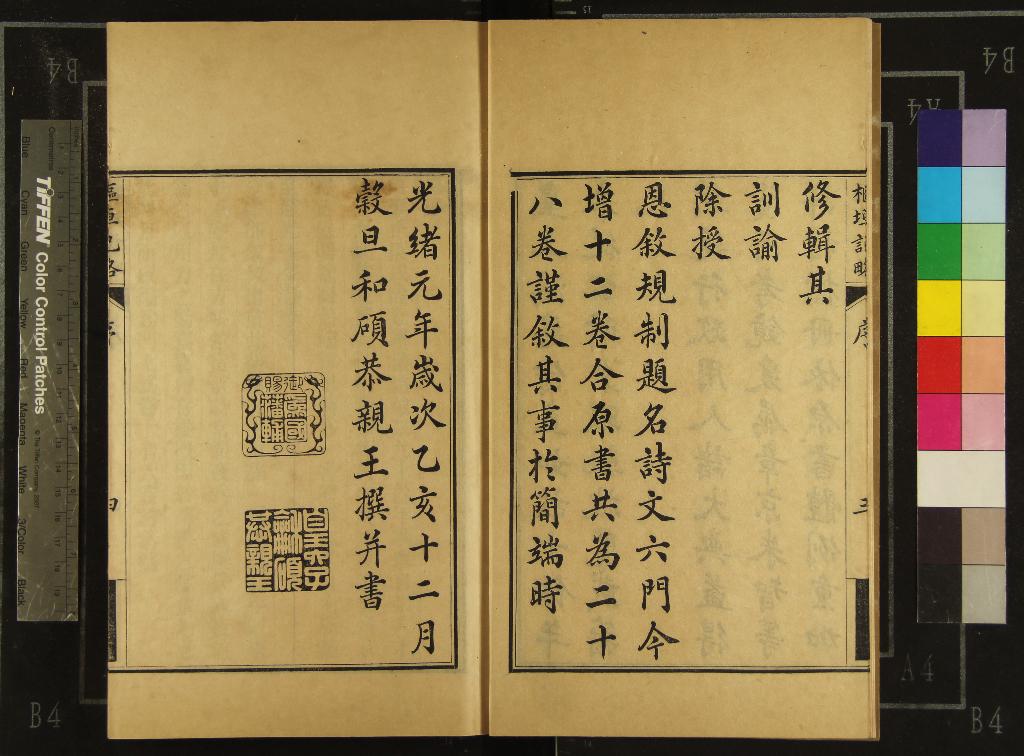 樞垣記略
序
三
修輯其
訓諭
除授
恩敘規制題名詩文六門今
增十二卷合原書共為二十
八卷謹敘其事於簡端時
光緒元年歲次乙亥十二月
穀旦和碩恭親王撰并書
御賜
皇六子
和碩
恭親王
樞垣記略
序
四
TIFFEN Color Control Patches
Blue
Cyan
Green
Yellow
Red
Magenta
White
3/Color
Black
B4
B4
A4
A4
B4
B4